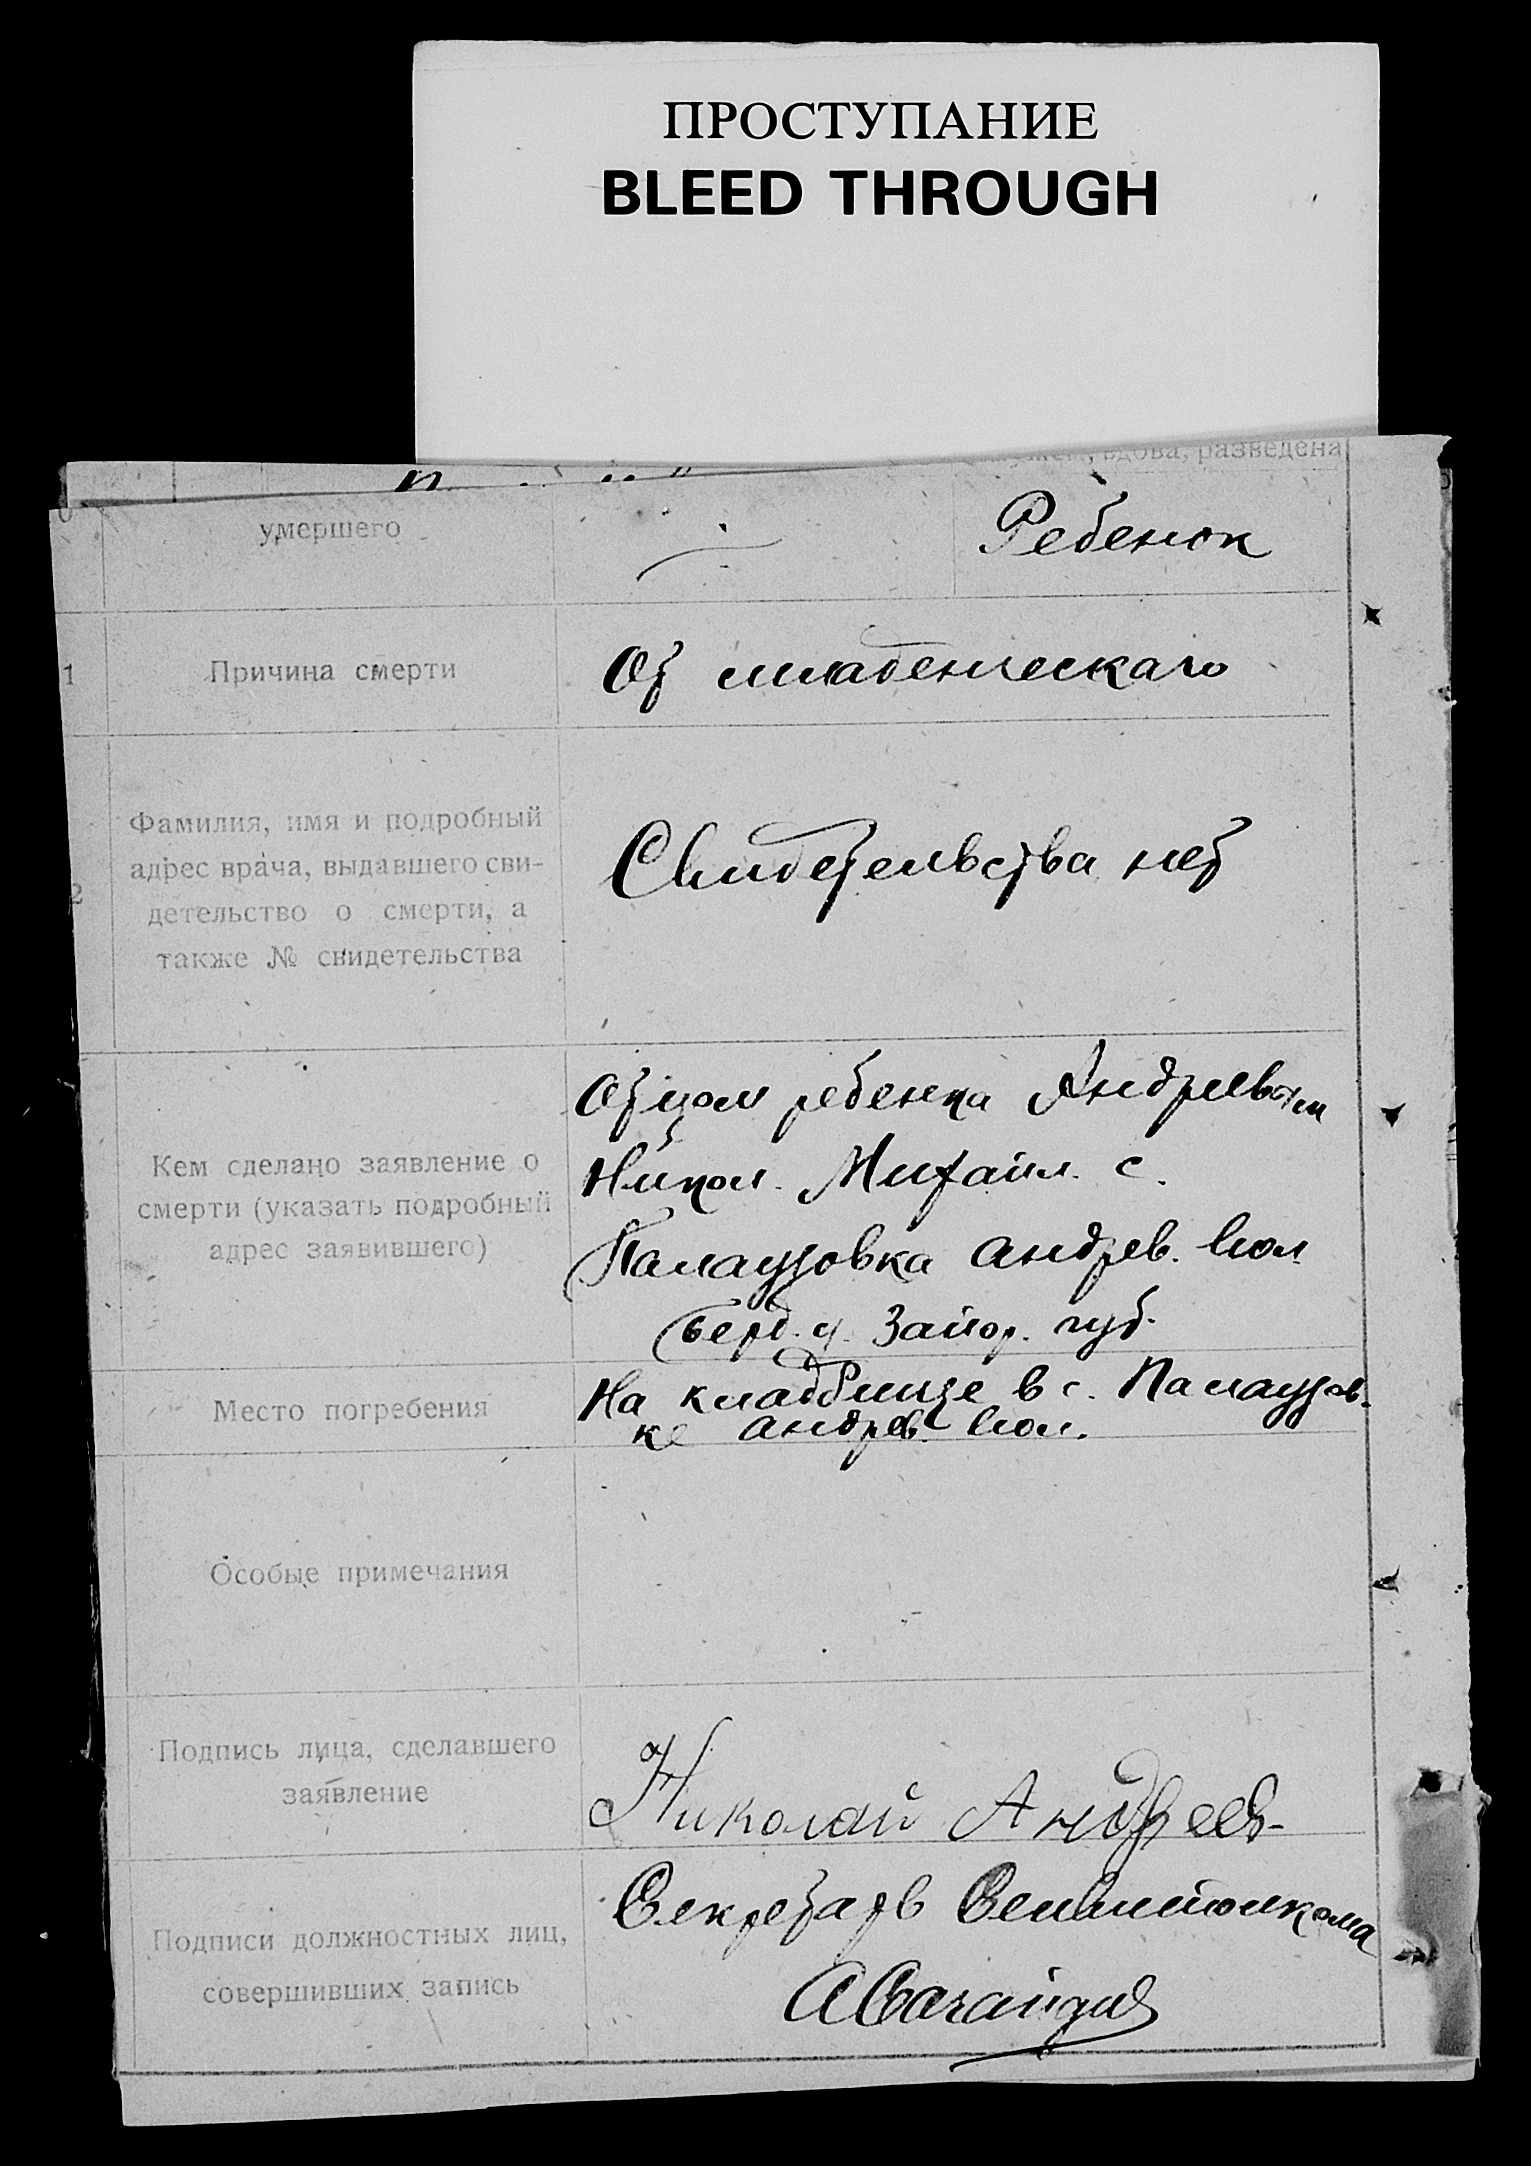 ПРОСТУПАНИЕ
BLEED THROUGH
вдова, разведена
умершего
Ребенок
1
Причина смерти
От младенческаго
Фамилия, имя и подробный
адрес врача, выдавшего сви-
детельство о смерти, а
также № свидетельства
2
Свидетельства нет
Кем сделано заявление о
смерти (указать подробный
адрес заявившего)
Отцом ребенка Андреевым
Никол. Михайл. с.
Палаузовка Андрев. вол.
Берд. у. Запор. губ.
Место погребения
На кладбище в с. Палаузов-
ке Андрев. вол.
Особые примечания
Подпись лица, сделавшего
заявление
Николай Андреев
Подписи должностных лиц,
совершивших запись
Секретарь